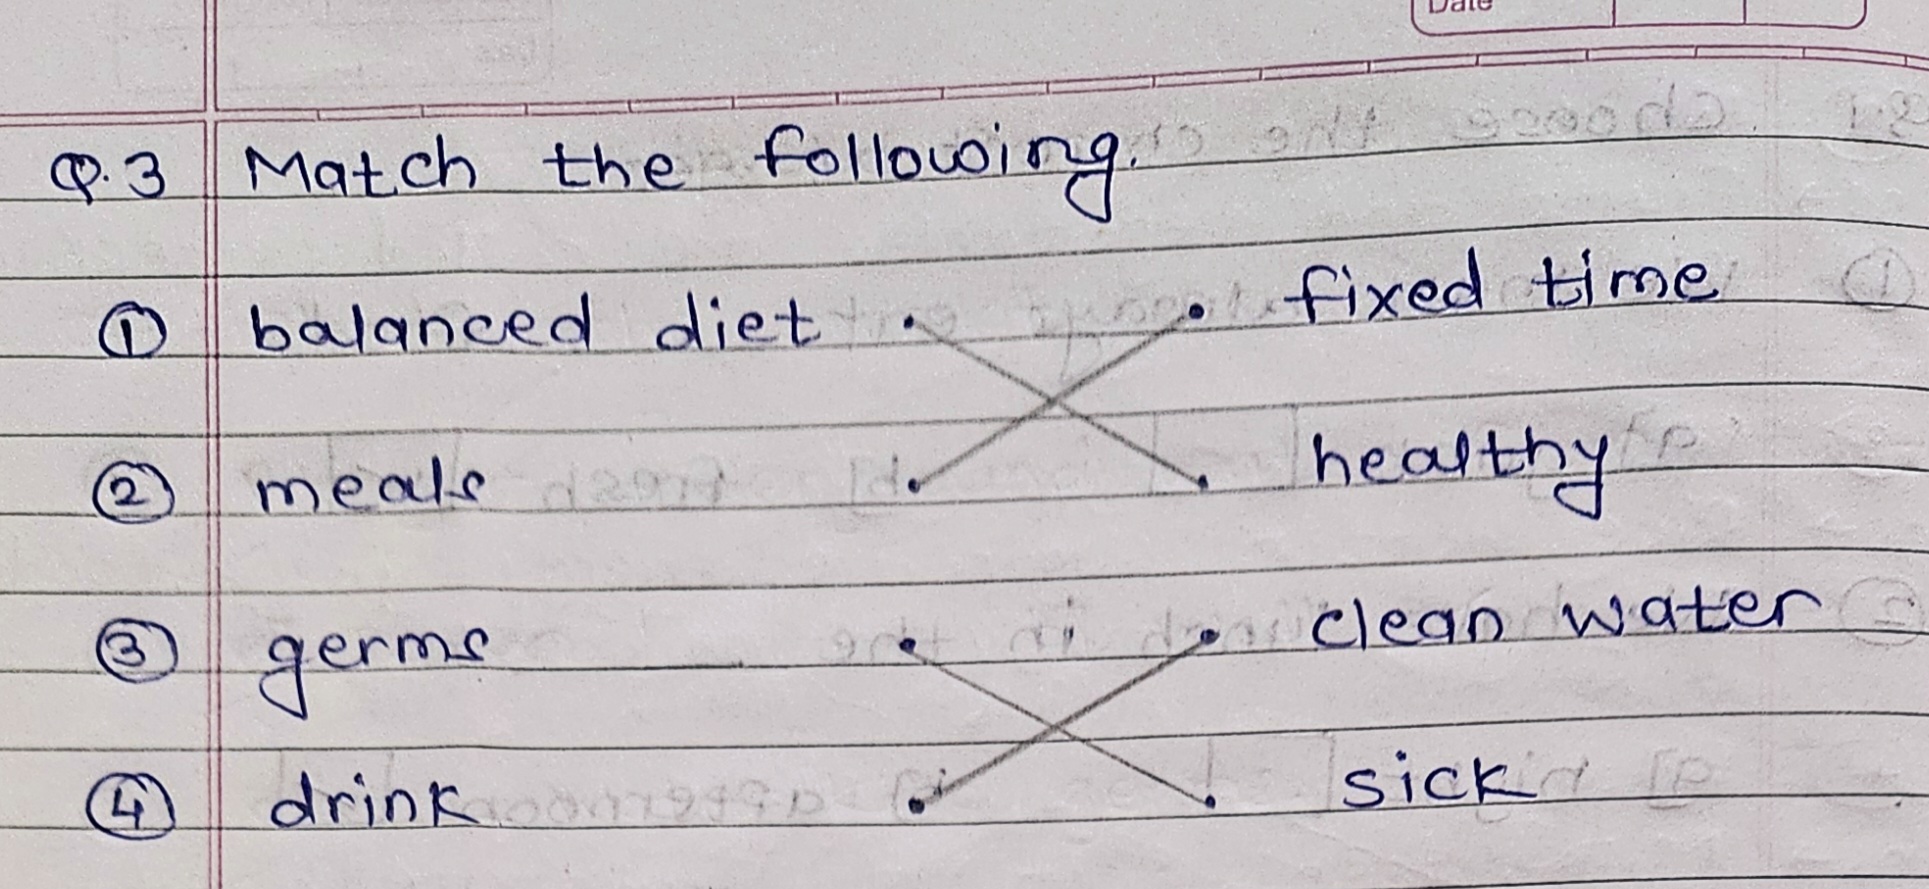 Date
Q.3 Match the following.
① balanced diet • • fixed time
② meals • • healthy
③ germs • • clean water
④ drink • • sick